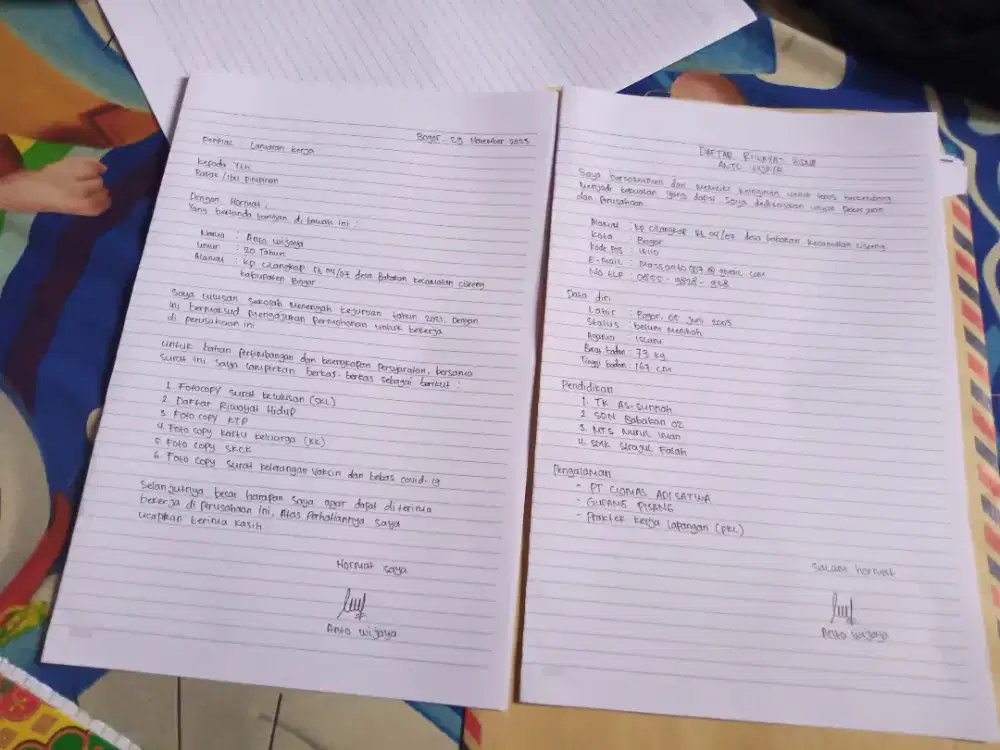 Bogor, 29 November 2023
Perihal Lamaran Kerja
Kepada Yth
Bapak / Ibu pimpinan
Dengan Hormat,
Yang bertanda tangan di bawah ini :
Nama : Anto Wijaya
Umur : 20 Tahun
Alamat : KP Cilangkap Rt 04/07 desa Babakan kecamatan ciseeng
kabupaten Bogor
Saya lulusan Sekolah Menengah Kejuruan tahun 2021. Dengan
ini bermaksud mengajukan permohonan untuk bekerja
di perusahaan ini
untuk bahan pertimbangan dan persyaratan, bersama
surat ini, saya lampirkan berkas-berkas sebagai berikut :
1. Fotocopy surat kelulusan (SKL)
2. Daftar Riwayat Hidup
3. Foto copy KTP
4. Foto copy kartu keluarga (KK)
5. Foto copy SKCK
6. Foto copy surat keterangan vaksin dan bebas covid-19
Selanjutnya besar harapan saya agar dapat diterima
bekerja di perusahaan ini, Atas Perhatiannya saya
ucapkan terima kasih
Hormat saya
Anto Wijaya
DAFTAR RIWAYAT HIDUP
ANTO WIJAYA
Saya bersungguh dan memiliki keinginan untuk terus berkembang
Menjadi yang Saya dedikasikan untuk pekerjaan
dan perusahaan.
Alamat : KP cilangkap Rt 04/07 desa babakan kecamatan ciseeng
Kota : Bogor
Kode Pos :
E-mail : @ gmail com
No tLP : 0855-9828-938
Data diri
Lahir : Bogor, 05 Juni 2003
Status : belum Menikah
Agama : Islam
Berat badan : 73 kg
Tinggi badan : 167 cm
Pendidikan
1. TK AS-Sunnah
2. SDN Babakan 02
3. MTS Nurul Iman
4. SMK Sirajul Falah
Pengalaman
- PT CIOMAS ADI SATWA
- GUDANG PISANG
- Praktek Kerja Lapangan (PKL)
Salam hormat
Anto Wijaya